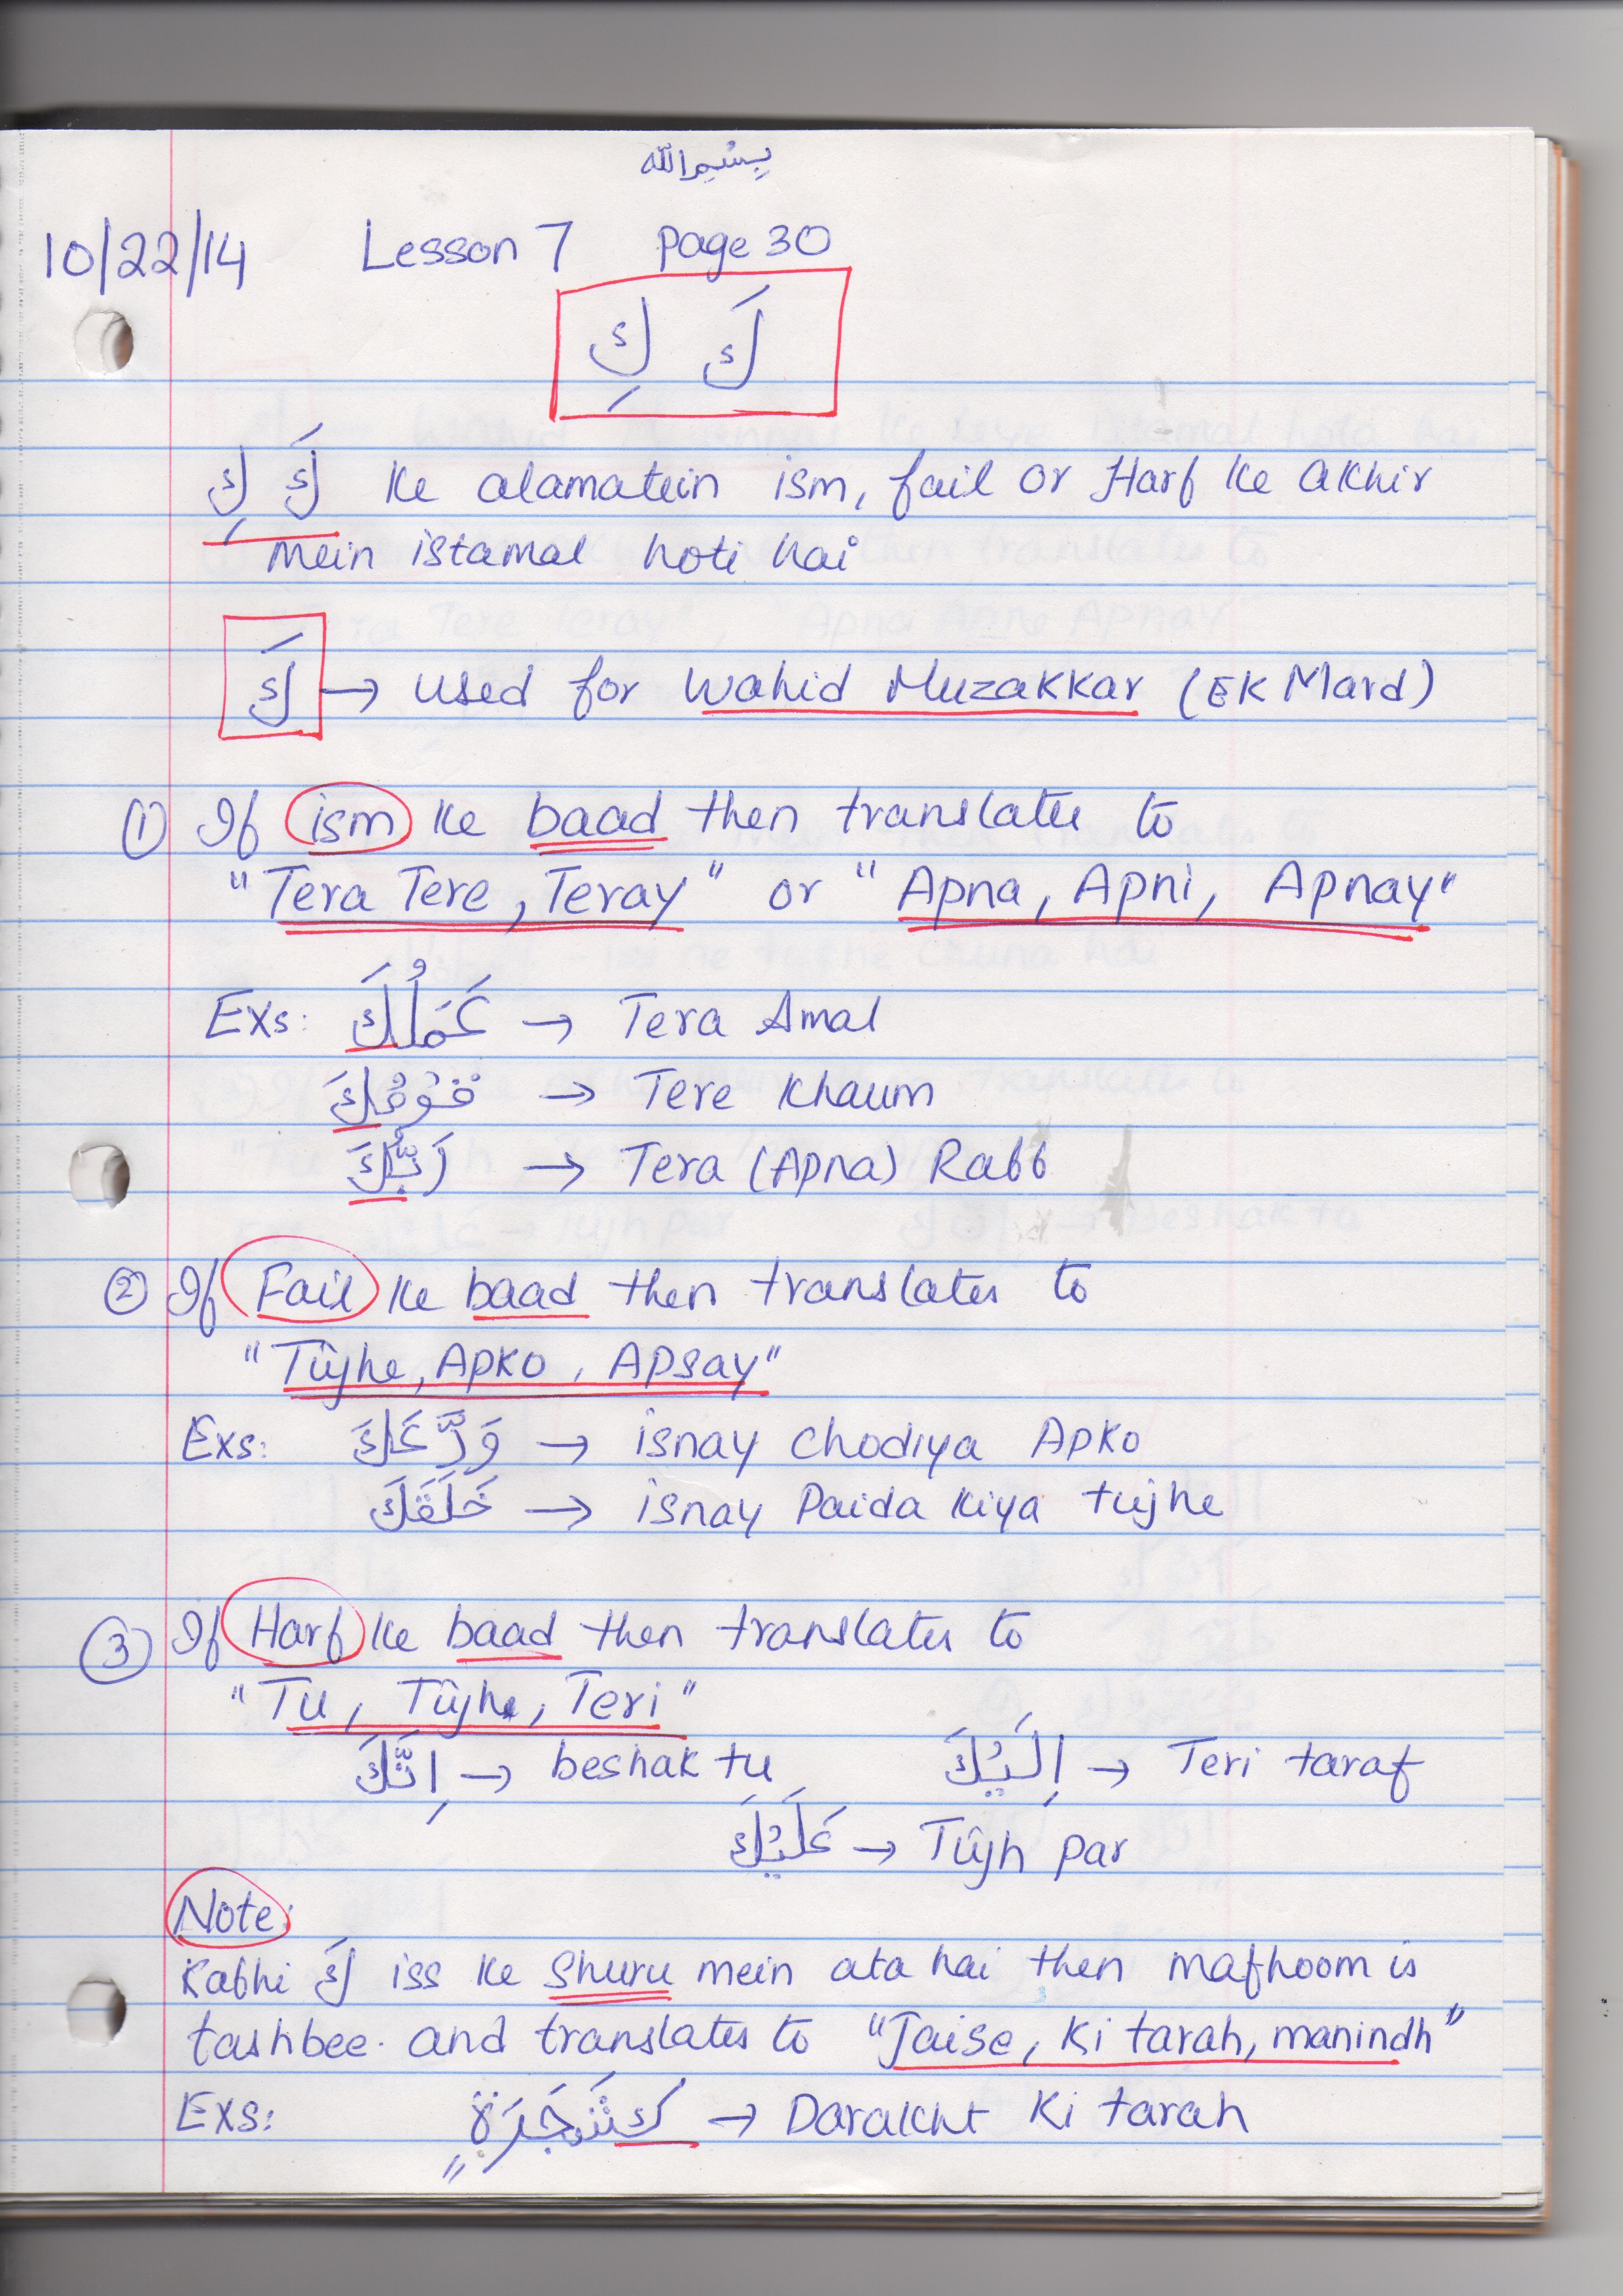 بِسْمِ اللّٰه
10/22/14 Lesson 7 page 30
كَ كِ
كَ كِ ke alamatein ism, fail or Harf ke akhir
mein istamal hoti hai
كَ → used for Wahid Muzakkar (EK Mard)
① If ism ke baad then translates to
"Tera Tere, Teray" or "Apna, Apni, Apnay"
Exs: عَمَلُكَ → Tera Amal
قَوْمُكَ → Tere Khaum
رَبُّكَ → Tera (Apna) Rabb
② If Fail ke baad then translates to
"Tûjhe, Apko, Apsay"
Exs: وَدَّعَكَ → isnay chodiya Apko
خَلَقَكَ → isnay Paida kiya tujhe
③ If Harf ke baad then translates to
"Tu, Tûjhe, Teri"
اِنَّكَ → beshak tu اِلَيْكَ → Teri taraf
عَلَيْكَ → Tûjh par
Note:
Kabhi كَ iss ke Shuru mein ata hai then mafhoom is
tashbee. and translates to "Jaise, Ki tarah, manindh"
Exs: كَشَجَرَةٍ → Darakht Ki tarah